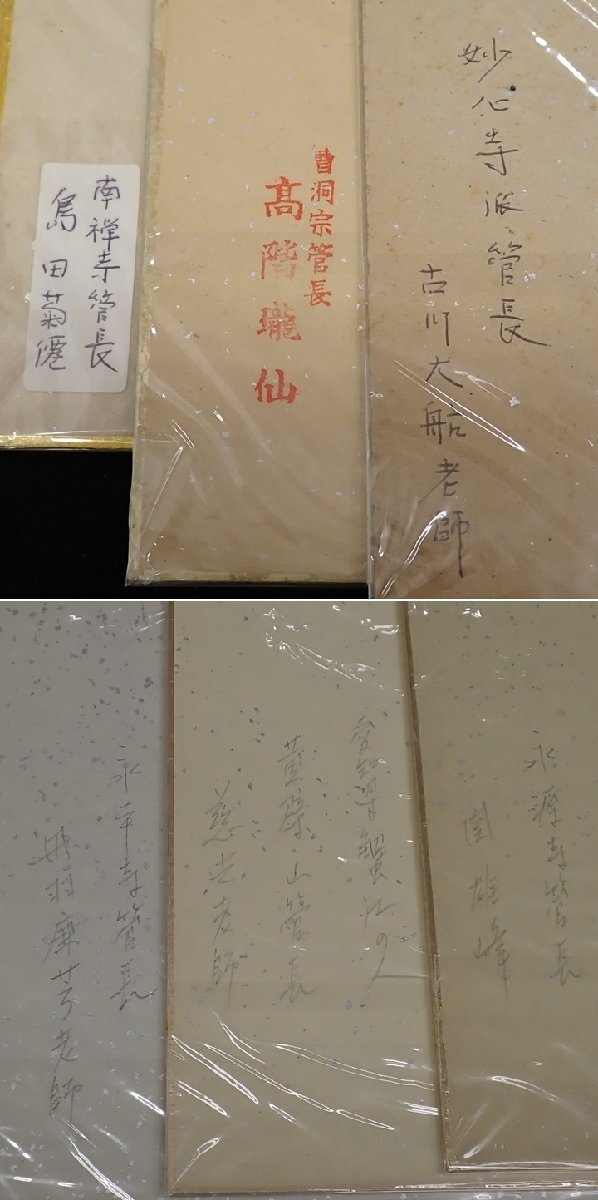 妙心寺派管長
古川大船老師
曹洞宗管長
高階瓏仙
南禅寺管長
島田菊僊
永源寺管長
関雄峰
愛知県蟹江の人
黄檗山管長
慈光老師
永平寺管長
丹羽廉芳老師